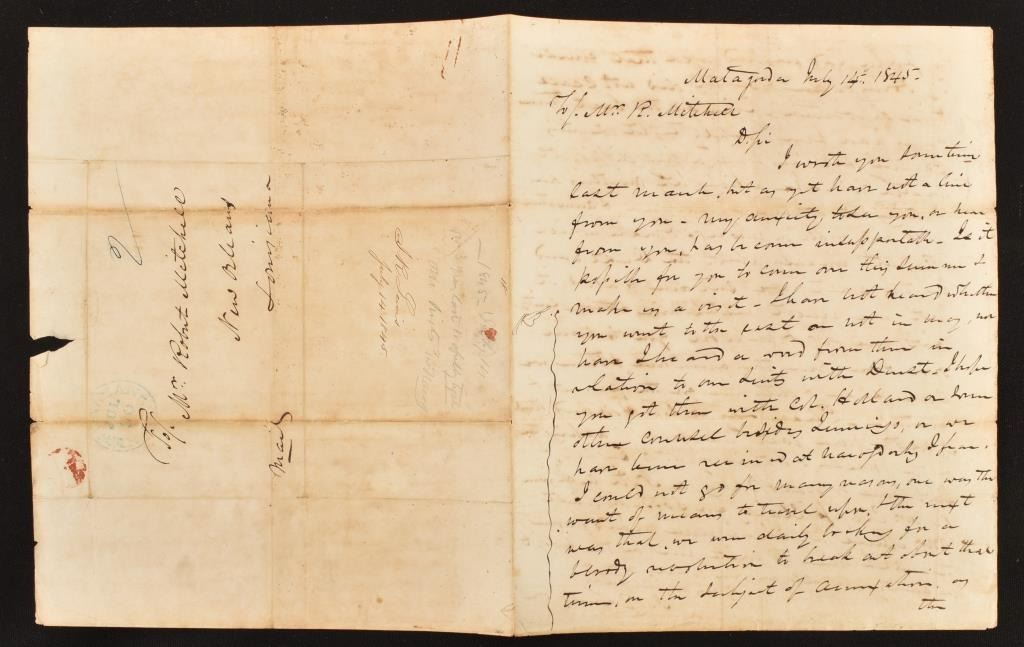 To/. Mr. Robert Mitchell
New Orleans
Louisiana
Mail
2
July 14 1845
Matagorda July 14th. 1845.
To/. Mr. R. Mitchell
D. Sir
I wrote you sometime
last month, but as yet have not a line
from you - my anxiety, to see you, or hear
from you, has become insupportable - Is it
possible for you to come over this summer &
make us a visit - I have not heard whether
you went to the east or not in may, nor
have I heard a word from there in
relation to our suits with Durst, I hope
you got there with Col. Holland or some
other counsel besides Jennings, or we
have been ruined at Nacogdoches I fear.
I could not go for many reasons, one was the
want of means to travel upon, & the next
was that, we were daily looking for a
bloody revolution to break out about that
time, on the subject of annexation, as
the